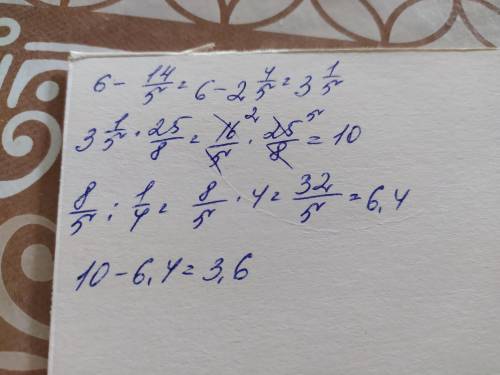 6 - 14/5 = 6 - 2 4/5 = 3 1/5
3 1/5 · 25/8 = 16/5 2 · 25/8 5 = 10
8/5 : 1/4 = 8/5 · 4 = 32/5 = 6,4
10 - 6,4 = 3,6